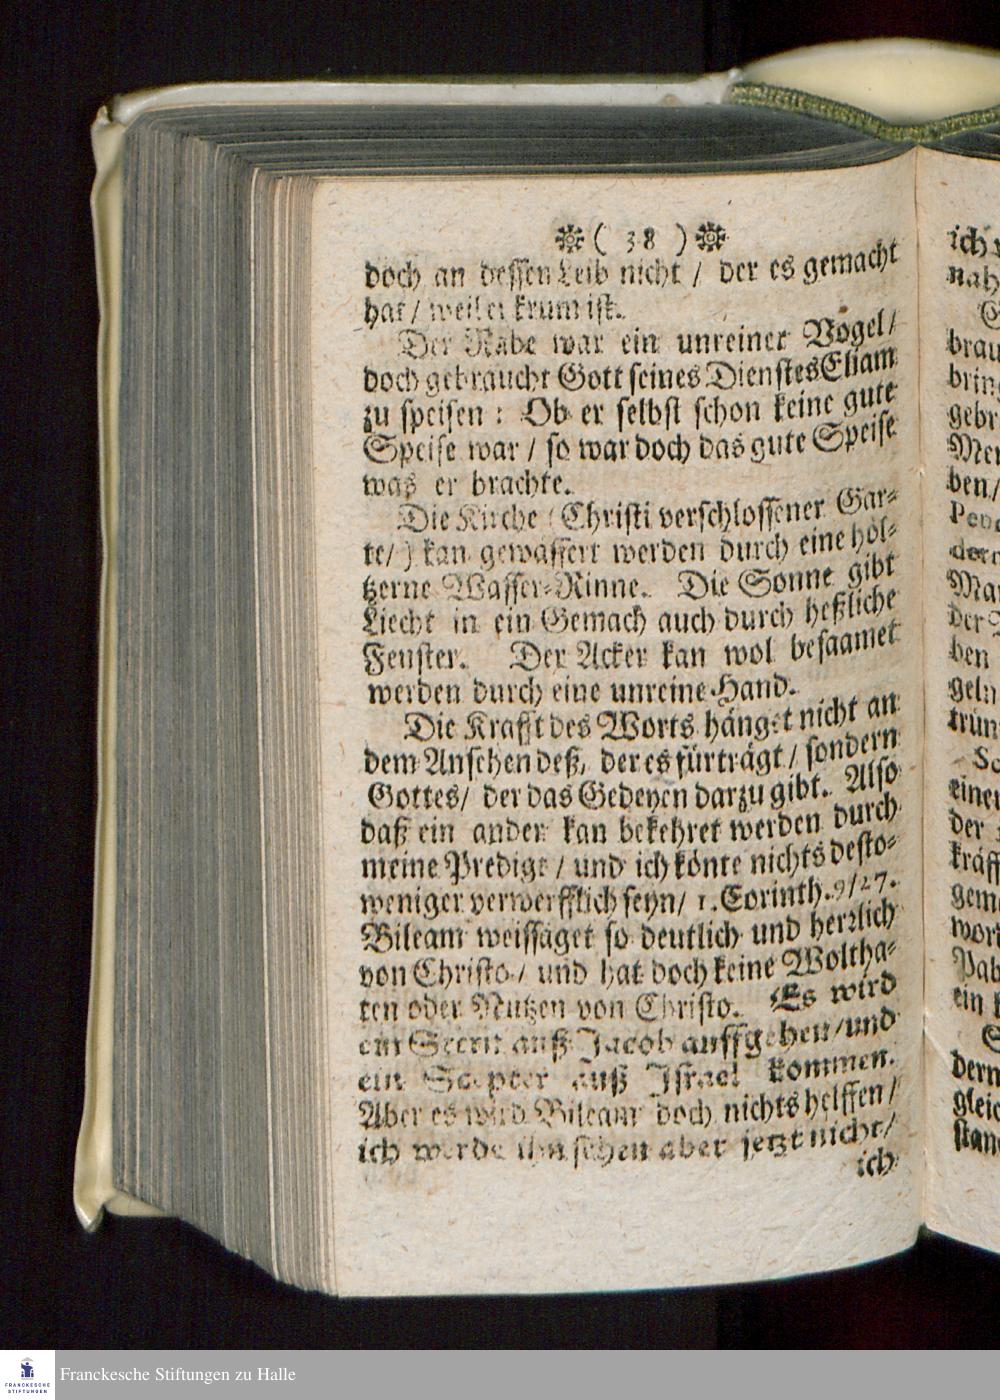 ( 38 )
doch an dessen Leib nicht / der es gemacht
hat / weil er krum ist.
Der Rabe war ein unreiner Vogel /
doch gebraucht Gott seines Dienstes Eliam
zu speisen : Ob er selbst schon keine gute
Speise war / so war doch das gute Speise
was er brachte.
Die Kirche ( Christi verschlossener Gar-
te / ) kan gewässert werden durch eine höl-
tzerne Wasser-Rinne. Die Sonne gibt
Liecht in ein Gemach auch durch heßliche
Fenster. Der Acker kan wol besaamet
werden durch eine unreine Hand.
Die Krafft des Worts hänget nicht an
dem Ansehen deß, der es fürträgt / sondern
Gottes / der das Gedeyen darzu gibt. Also
daß ein ander kan bekehret werden durch
meine Predigt / und ich könte nichts desto-
weniger verwerfflich seyn / 1. Corinth. 9/27.
Bileam weissaget so deutlich und herzlich
von Christo / und hat doch keine Woltha-
ten oder Nutzen von Christo. Es wird
ein Stern auß Jacob auffgehen / und
ein Scepter auß Israel kommen.
Aber es wird Bileam doch nichts helffen /
ich werde ihn sehen aber jetzt nicht /
ich
ich
nah
brau
bring
gebr
Men
ben /
der
ben
geln
trün
einer
der
kräff
gem
wor
Pab
ein
dern
gleic
stan
Franckesche Stiftungen zu Halle
FRANCKESCHE
STIFTUNGEN